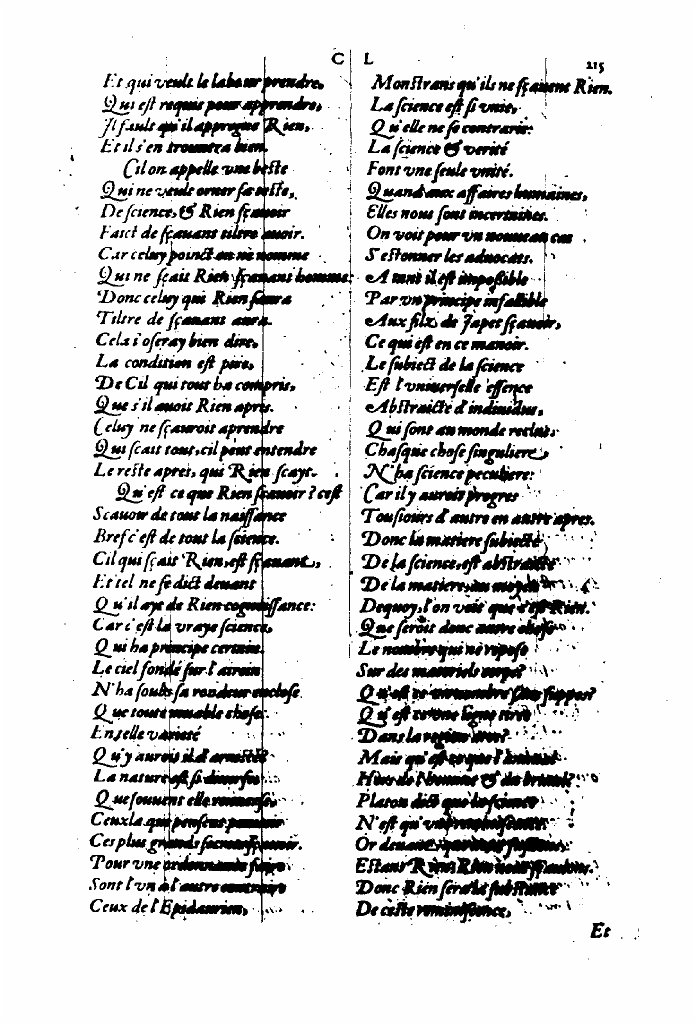 C L
215
Et qui veult le labeur prendre,
Qui est requis pour apprendre,
Il fault qu'il appregne Rien,
Et il s'en trouuera bien.
Cil on appelle vne beste
Qui ne veult orner sa teste,
De science, & Rien sçauoir
Faict de sçauans tiltre auoir.
Car celuy poinct on ne nomme
Qui ne sçait Rien sçauant homme:
Donc celuy qui Rien sçaura
Tiltre de sçauant aura.
Cela i'oseray bien dire,
La condition est pire,
De Cil qui tout ha compris,
Que s'il auoit Rien apris.
Celuy ne sçauroit aprendre
Qui scait tout, cil peut entendre
Le reste apres, qui Rien scayt.
Qu'est ce que Rien sçauoir? c'est
Scauoir de tout la naissance
Bref c'est de tout la science.
Cil qui sçait Rien, est sçauant,
Et tel ne se dict deuant
Qu'il aye de Rien cognoissance:
Car c'est la vraye science,
Qui ha principe certain.
Le ciel fondé sur l'airain
N'ha soubs sa rondeur enclose
Que toute muable chose.
En elle varieté
Qu'y auroit il d'arresté
La nature est si diuerse
Que souuent elle renuerse,
Ceux la qui pensent
Ces plus grands
Pour vne ordonnance
Sont l'vn à l'autre contraire
Ceux de l'Epidaurien,
Monstrans qu'ils ne sçauent Rien.
La science est si vnie,
Qu'elle ne se contrarie:
La science & verité
Font vne seule vnité.
Quand aux affaires humaines,
Elles nous sont incertaines.
On voit pour vn nouueau cas
S'estonner les aduocats.
A tant il est impossible
Par vn principe infallible
Aux filz de Iapet sçauoir,
Ce qui est en ce manoir.
Le subiect de la science
Est l'vniuerselle essence
Abstraicte d'indiuidus,
Qui sont au monde reclus:
Chasque chose singuliere,
N'ha science peculiere:
Car il y auroit progres
Tousiours d'autre en autre apres.
Donc la matiere subiecte
De la science, est abstraicte
De la matiere, au moyen
Dequoy, l'on voit que c'est Rien.
Que seroit donc autre chose
Le nombre qui ne repose
Sur des materiels corps?
Qu'est ce
Qu'est ce vne ligne
Dans la region
Mais qu'est ce que
Hors de l'homme & du
Platon dict que la science
N'est qu'vne
Or deuant
Estant Rien, Rien
Donc Rien sera la substance
De ceste reminiscence,
Et